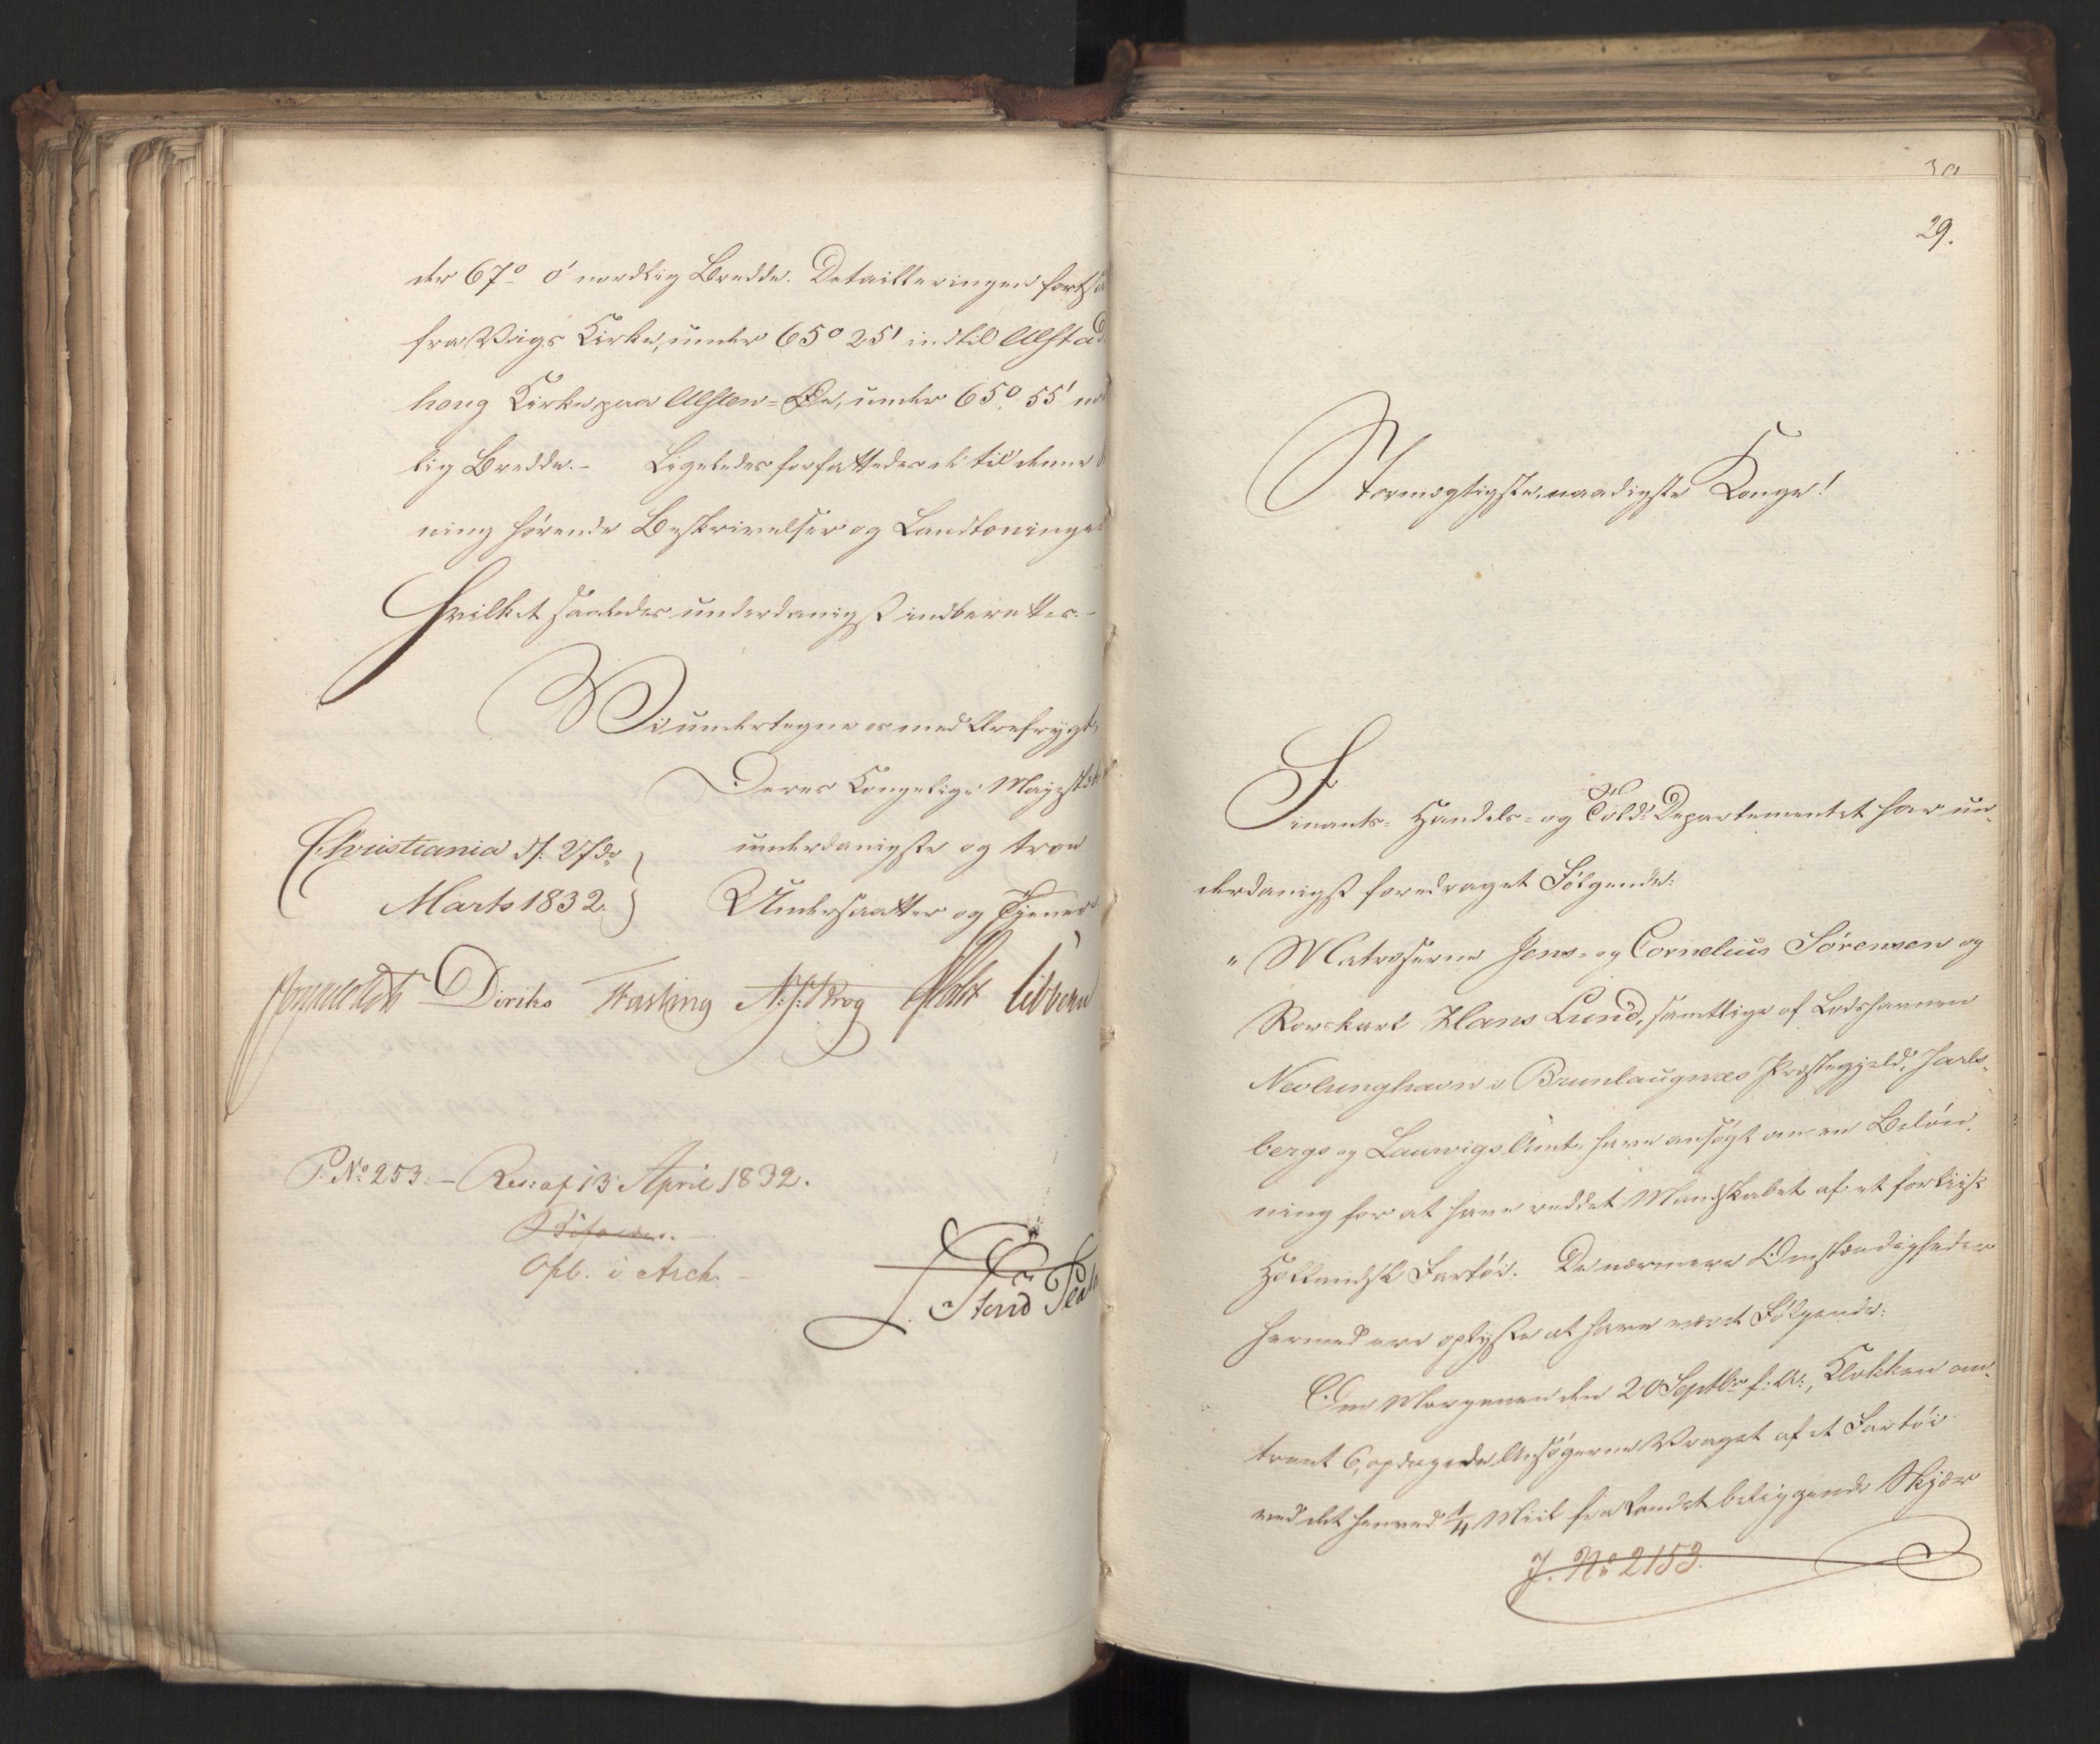 der 67° 0' nordlig Bredde. Detailleringen forts
fra Vigs Kirke, under 65° 25' indtil Alstad
houg Kirke paa Alsten-Øe, under 65° 55' no
lig Bredde. - Ligeledes forfattedes de til denne
ning hørende Beskrivelser og Landtoninger
Hvilket saaledes underdanigst indberettes. -
Vi undertegne os med Ærefrygt,
Deres Kongelige Majestæt
Christiania d. 27de
Marts 1832.
underdanigste og troe
Undersaatter og Tjenere
Diriks Fasting Krog Holst Sibbern
P. No 253. - Res: af 13 April 1832.
Opl. i Arch. -
30
29.
Stormægtigste, naadigste Konge!
Finants- Handels- og Told-Departementet har un-
derdanigst foredraget Følgende:
" Matroserne Jens- og Cornelius Sörensen og
Rorskarl Hans Lund, samtlige af Lodshavnen
Nevlunghavn i Brunlaugnæs Præstegjeld, Jarls-
bergs og Laurvigs Amt, have ansøgt om en Beløn-
ning for at have reddet Mandskabet af et forliist
Hollandsk Fartøi. De nærmere Omstændigheder
hermed ere oplyste at have været Følgende:
Om Morgenen den 20 Septbr f: A:, Klokken om-
trent 6, opdagede Ansøgerne Vraget af et Fartøi
ved det henved 1/4 Miil fra Landet beliggende Skjær
J. No 2153.